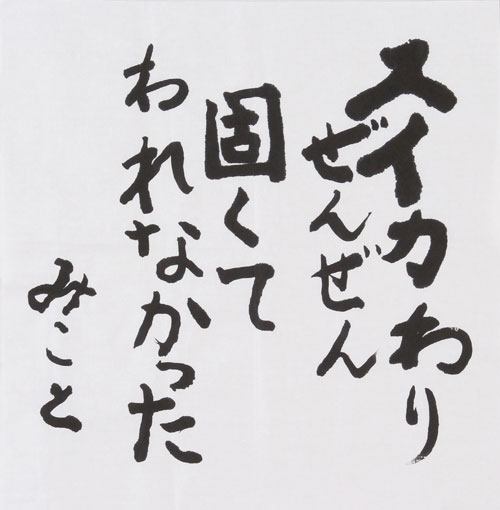 スイカわり
ぜんぜん
固くて
われなかった
みこと